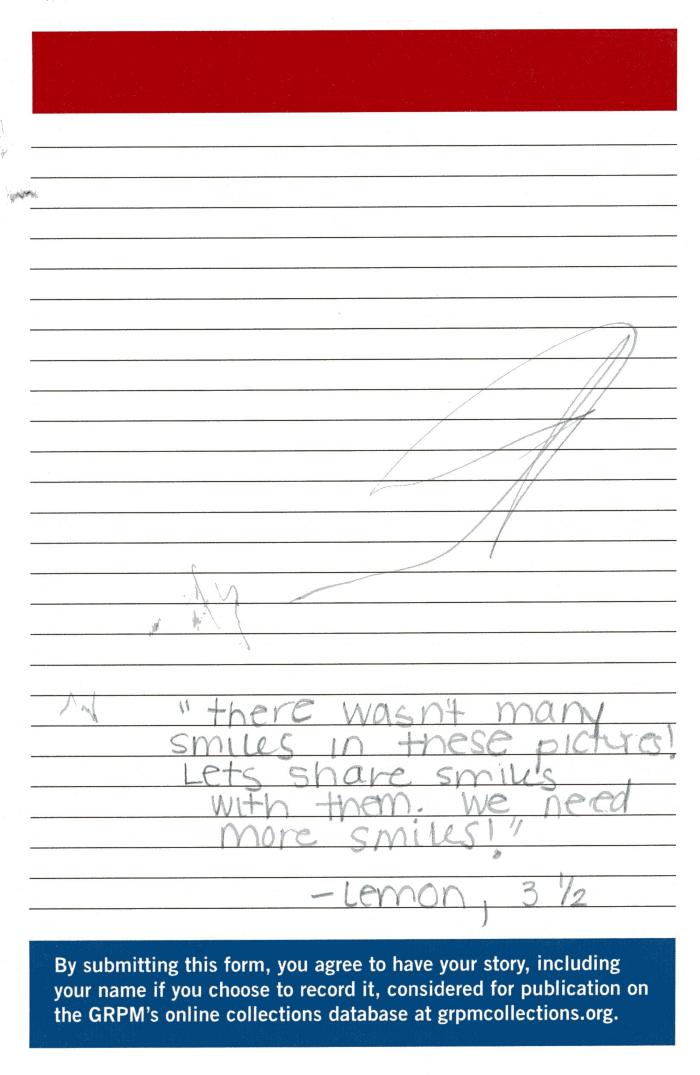 "there wasn't many
smiles in these pictures!
Lets share smiles
with them. We need
more smiles!"
-Lemon, 3 1/2
By submitting this form, you agree to have your story, including
your name if you choose to record it, considered for publication on
the GRPM's online collections database at grpmcollections.org.